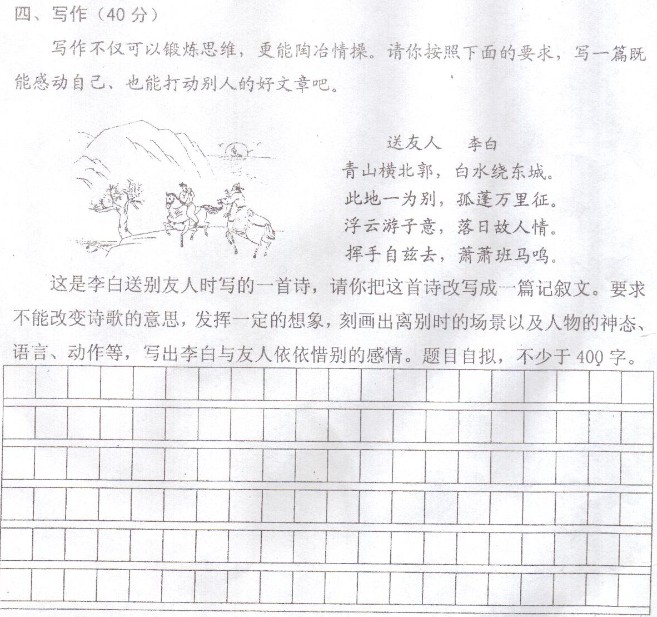 四、写作（40分）
写作不仅可以锻炼思维，更能陶冶情操。请你按照下面的要求，写一篇既
能感动自己、也能打动别人的好文章吧。
送友人 李白
青山横北郭，白水绕东城。
此地一为别，孤蓬万里征。
浮云游子意，落日故人情。
挥手自兹去，萧萧班马鸣。
这是李白送别友人时写的一首诗，请你把这首诗改写成一篇记叙文。要求
不能改变诗歌的意思，发挥一定的想象，刻画出离别时的场景以及人物的神态、
语言、动作等，写出李白与友人依依惜别的感情。题目自拟，不少于400字。